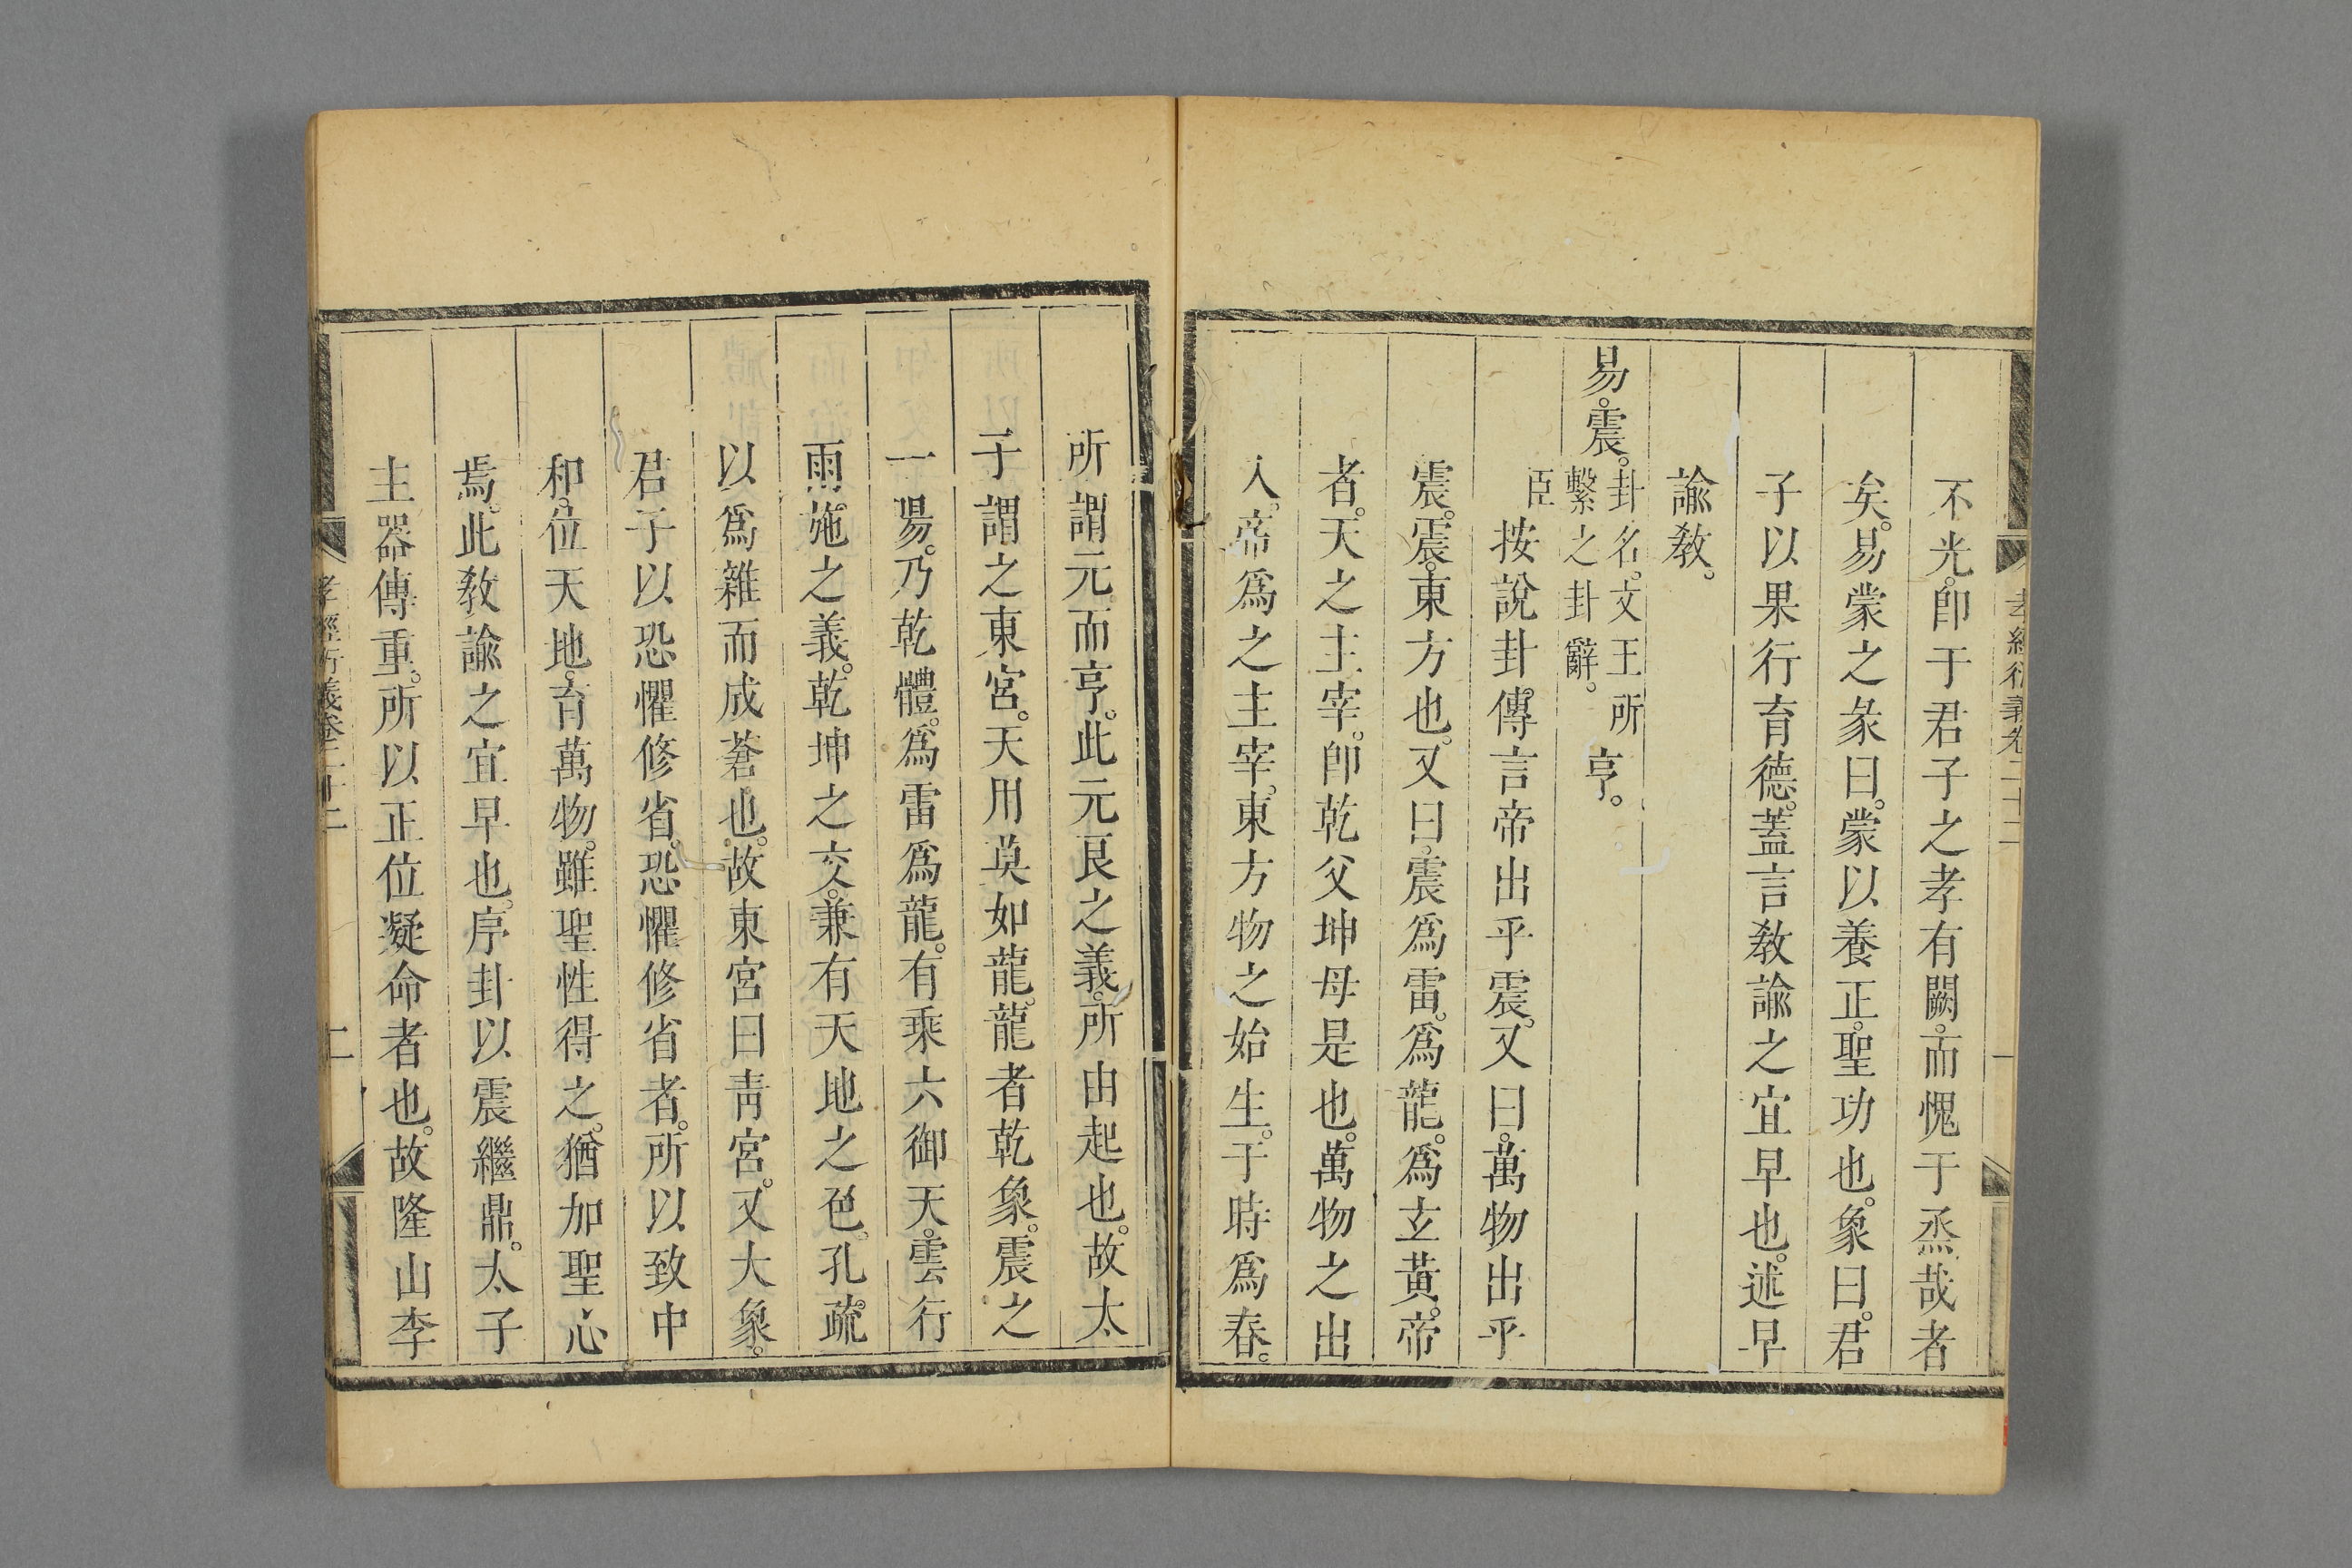 不光。卽于君子之孝有闕。而愧于烝哉者
矣。易蒙之彖曰。蒙以養正。聖功也。象曰。君
子以果行育德。蓋言教諭之宜早也。述早
諭教。
易。震。卦名。文王所繫之卦辭。亨。
臣按說卦傳言帝出乎震。又曰。萬物出乎
震。震。東方也。又曰。震爲雷。爲龍。爲玄黃。帝
者。天之主宰。卽乾父坤母是也。萬物之出
入。帝爲之主宰。東方物之始生。于時爲春。
所謂元。而亨。此元良之義。所由起也。故太
子謂之東宮。天用莫如龍。龍者乾象。震之
一陽。乃乾體。爲雷爲龍。有乘六御天。雲行
雨施之義。乾坤之交。兼有天地之色。孔疏
以爲雜而成蒼也。故東宮曰靑宮。又大象。
君子以恐懼修省。恐懼修省者。所以致中
和。位天地。育萬物。雖聖性得之。猶加聖心
焉。此教諭之宜早也。序卦以震繼鼎。太子
主器傳重。所以正位凝命者也。故隆山李
孝經衍義卷二十二
二
孝經衍義卷二十二
一